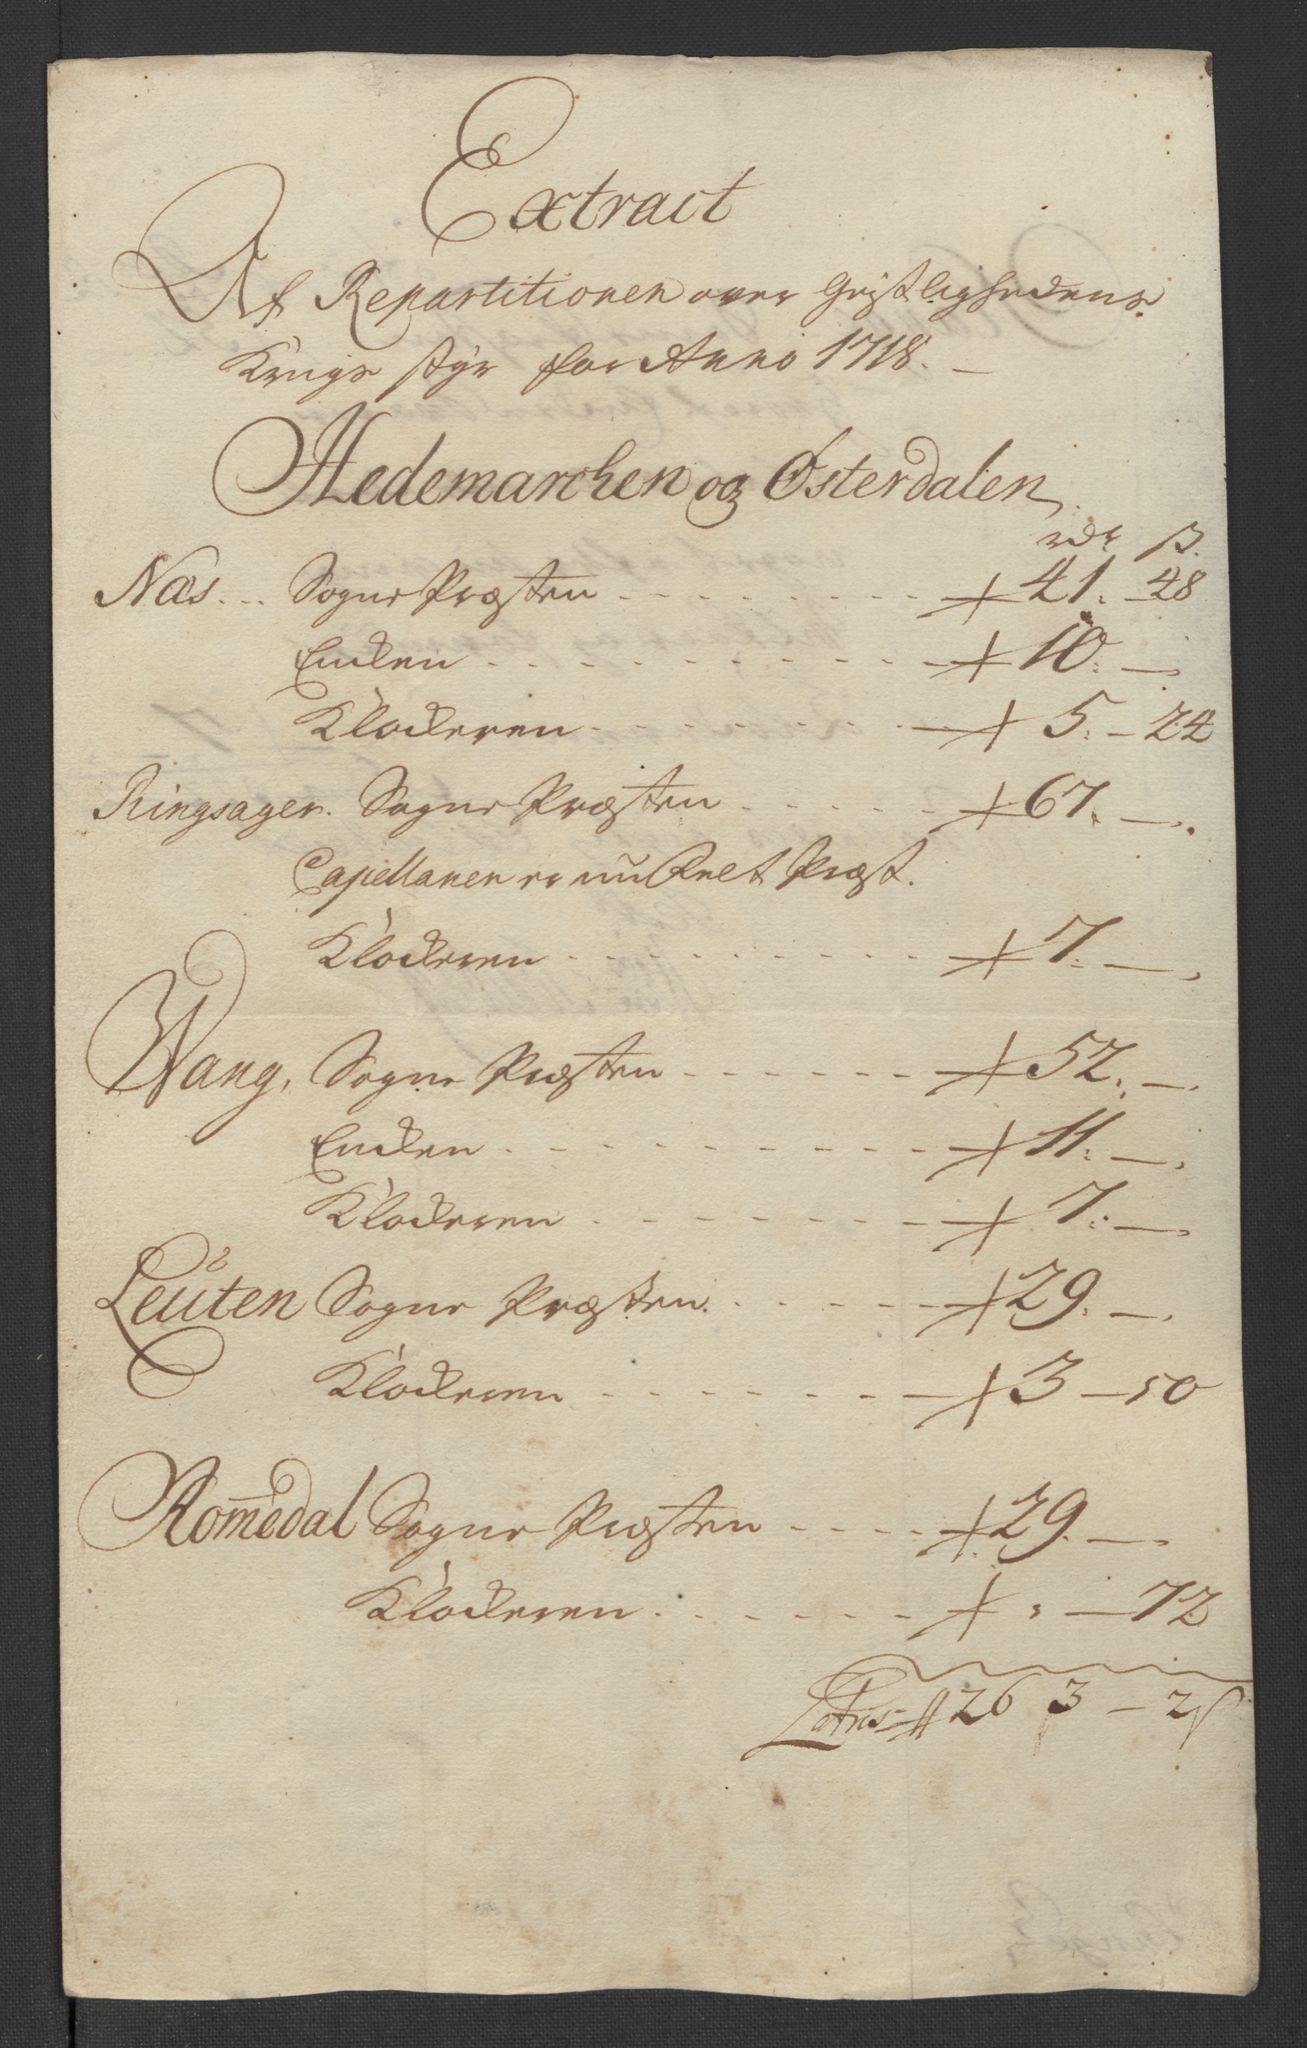 Extract
Af Repartitionen over Geistlighedens
Krigs styr for Anno 1718.
Hedemarchen og Østerdalen
rdr ß.
Næs... Sogne Præsten - - - 41. 48
Encken - - - 10. —
Klockeren - - - 5. - 24
Ringsager. Sogne Præsten - - - 67. —.
Capellanen er nu Felt Præst.
Klockeren - - - 7. —
Wang, Sogne Præsten - - - 52. —
Encken - - - 11. —
Klockeren - - - 7. —
Leuten Sogne Præsten - - - 29. —
Klockeren - - - 3 — 50
Rom̄edal Sogne Præsten - - - 29. —
Klockeren - - - „ — 72
Latus 263 — 2